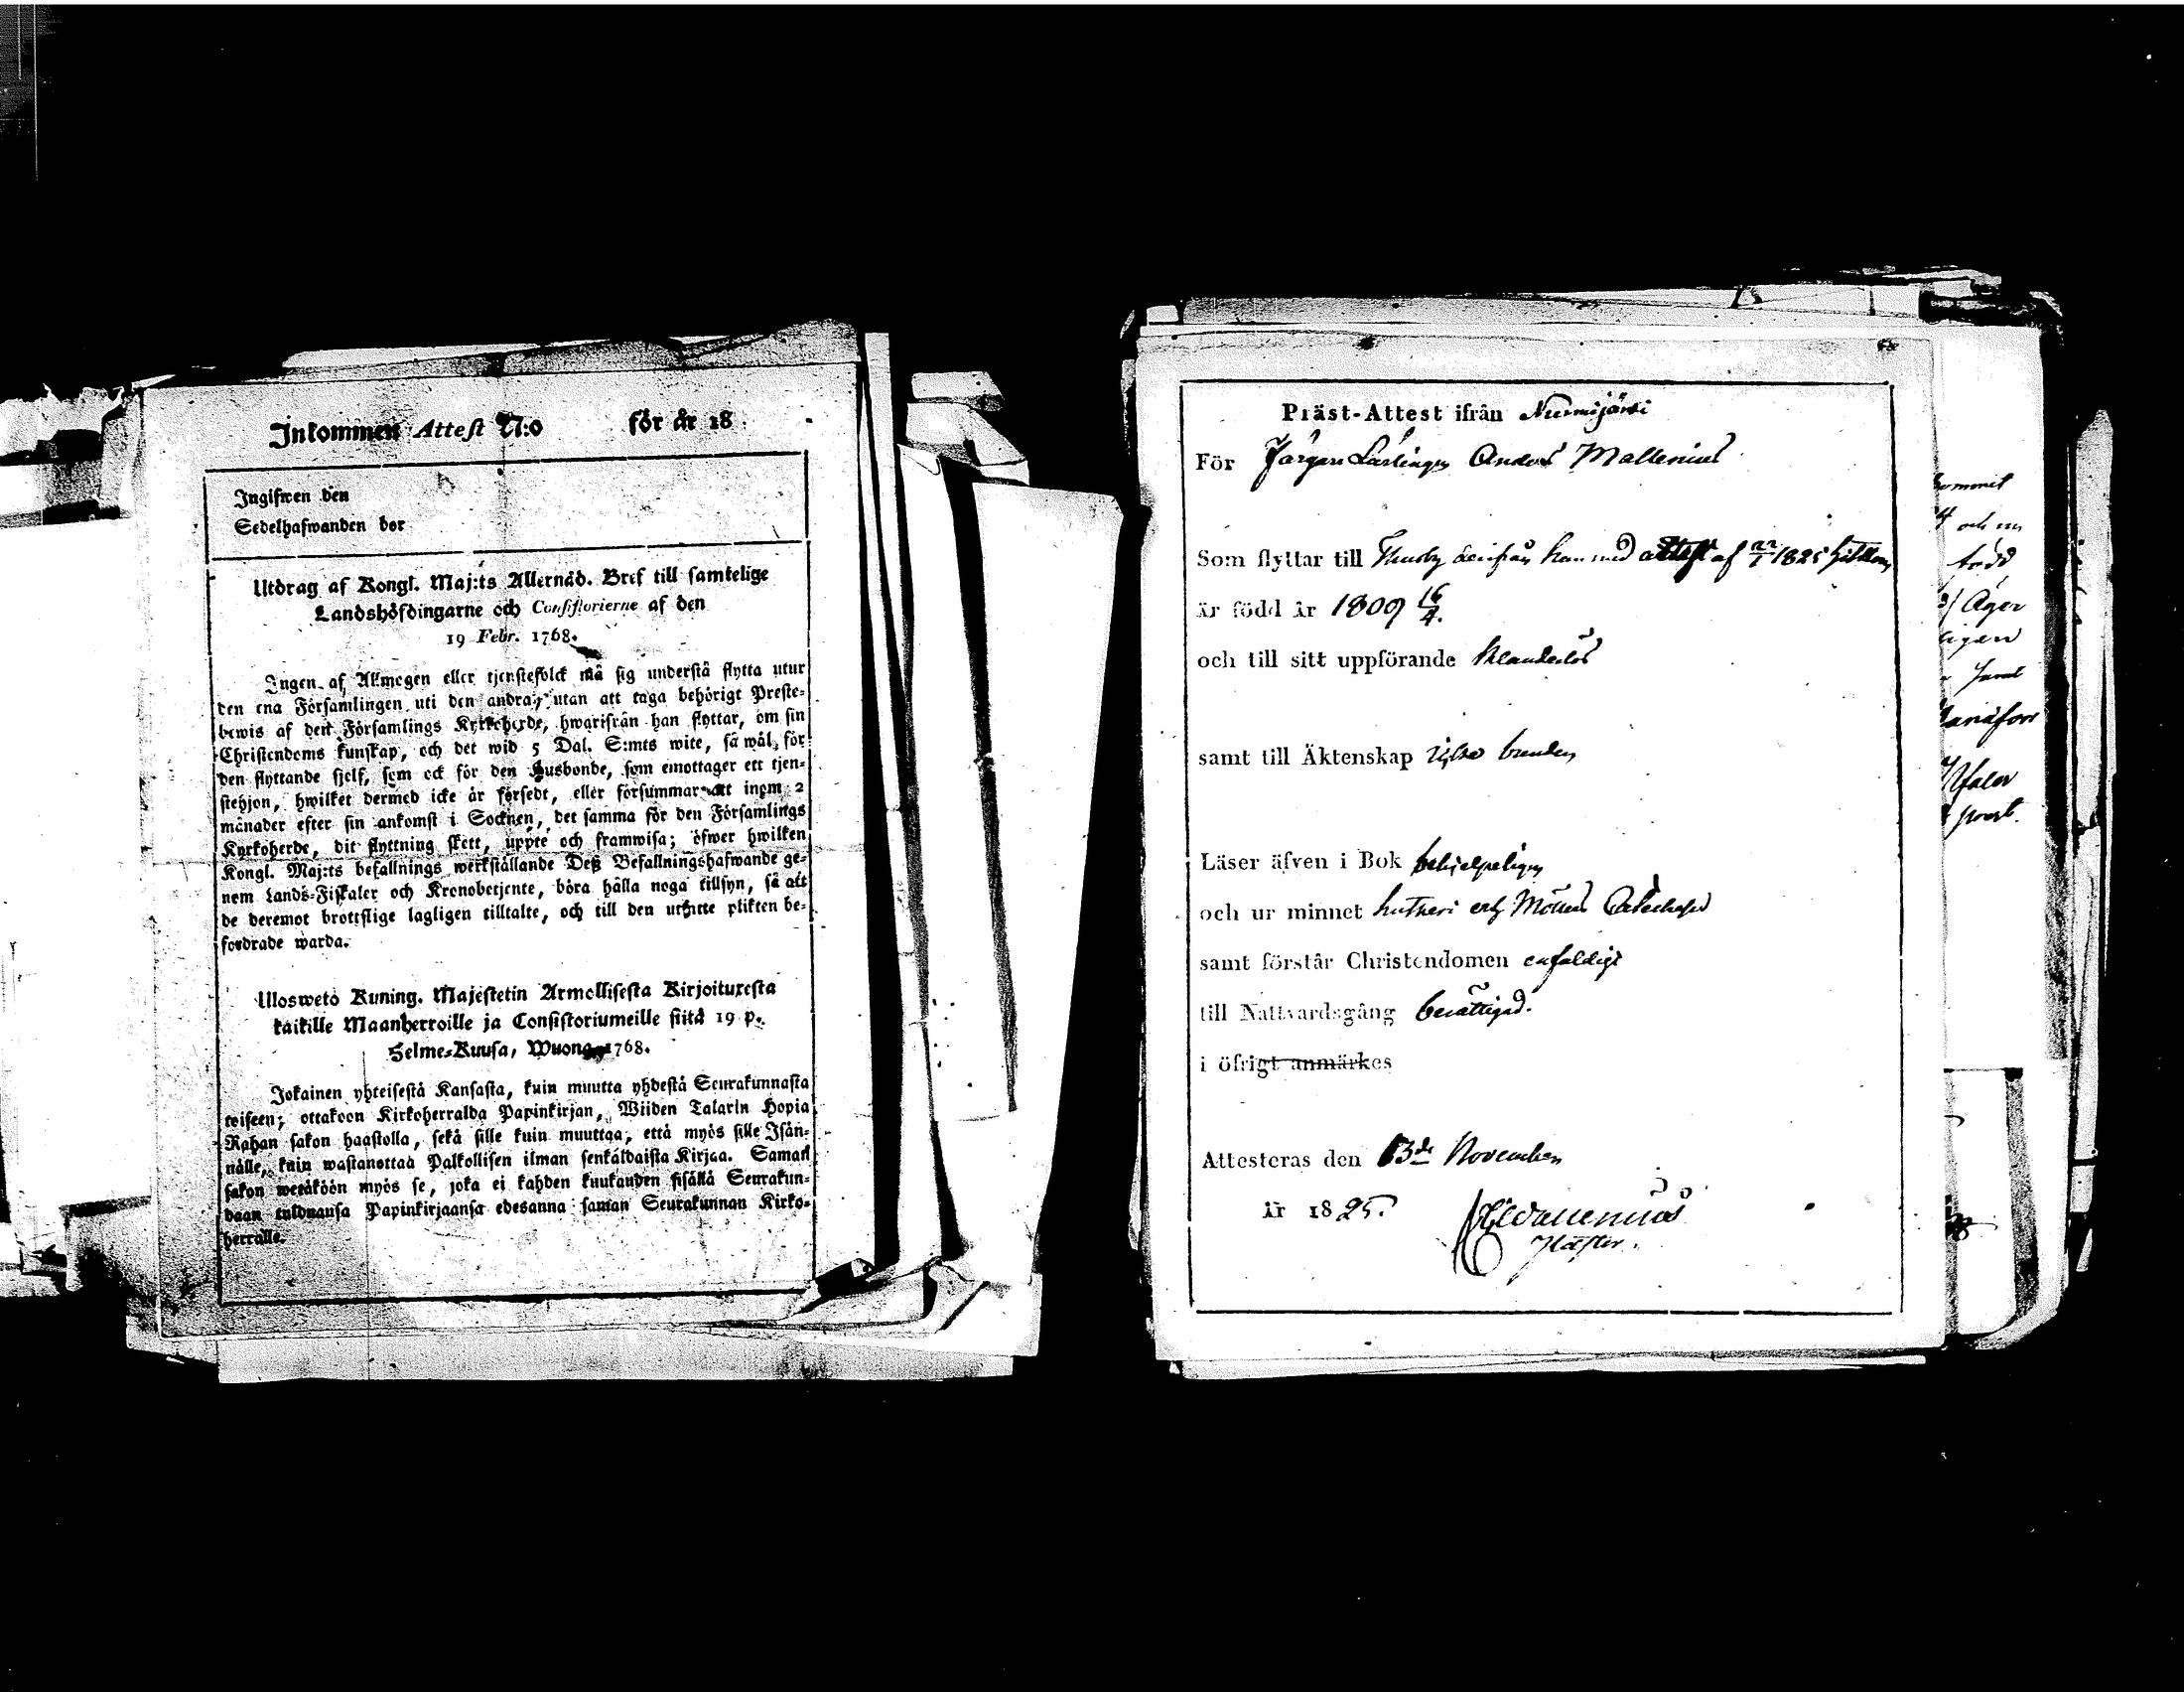 Inkommen Attest N:o för år 18
Ingifwen den
Sedelhafwanden bor
Utdrag af Kongl. Maj:ts Allernåd. Bref till samtelige
Landshöfdingarne och Consistorierne af den
19 Febr. 1768.
Ingen af Allmogen eller tjenstefolck må sig understå flytta utur
den ena Församlingen uti den andra, utan att taga behörigt Preste-
bewis af den Församlings Kyrkoherde, hwarifrån han flyttar, om sin
Christendoms kunskap, och det wid 5 Dal. S:mts wite, så wäl för
den flyttande sjelf, som ock för den Husbonde, som emottager ett tjen-
stehjon, hwilket dermed icke är försedt, eller försummar att inom 2
månader efter sin ankomst i Socknen, det samma för den Församlings
Kyrkoherde, dit flyttning skett, uppte och framwisa; öfwer hwilken
Kongl. Maj:ts befallnings werkställande Deß Befallningshafwande ge-
nom Lands-Fiskaler och Kronobetjente, böra hålla noga tillsyn, så att
de deremot brottslige lagligen tilltalte, och till den utsatte plikten be-
fordrade warda.
Ulosweto Kuning. Majestetin Armollisesta Kirjoituxesta
kaikille Maanherroille ja Consistoriumeille siitä 19 p.
Helme-Kuusa, Wuong 1768.
Jokainen yhteisestä Kansasta, kuin muutta yhdestä Seurakunnasta
toiseen; ottakoon Kirkoherralda Papinkirjan, Wiiden Talarin Hopia
Rahan sakon haastolla, sekä sille kuin muuttaa, että myös sille Isän-
nälle, kuin wastanottaa Palkollisen ilman senkältdaista Kirjaa. Saman
sakon wetäköön myös se, joka ei kahden kuukauden sisällä Seurakun-
daan tulduansa Papinkirjaansa edesanna saman Seurakunnan Kirko-
herralle.
Präst-Attest ifrån Nurmijärvi
För Anders Mallenius
Som flyttar till Thusby han med attest af 22/1 1825
är född år 1809 16/4.
och till sitt uppförande klanderlös
samt till Äktenskap
Läser äfven i Bok behjelpeligen
och ur minnet Lutheri
samt förstår Christendomen enfaldigt
till Nattvardsgång berättigad.
i öfrigt anmärkes
Attesteras den 13de November
år 1825.